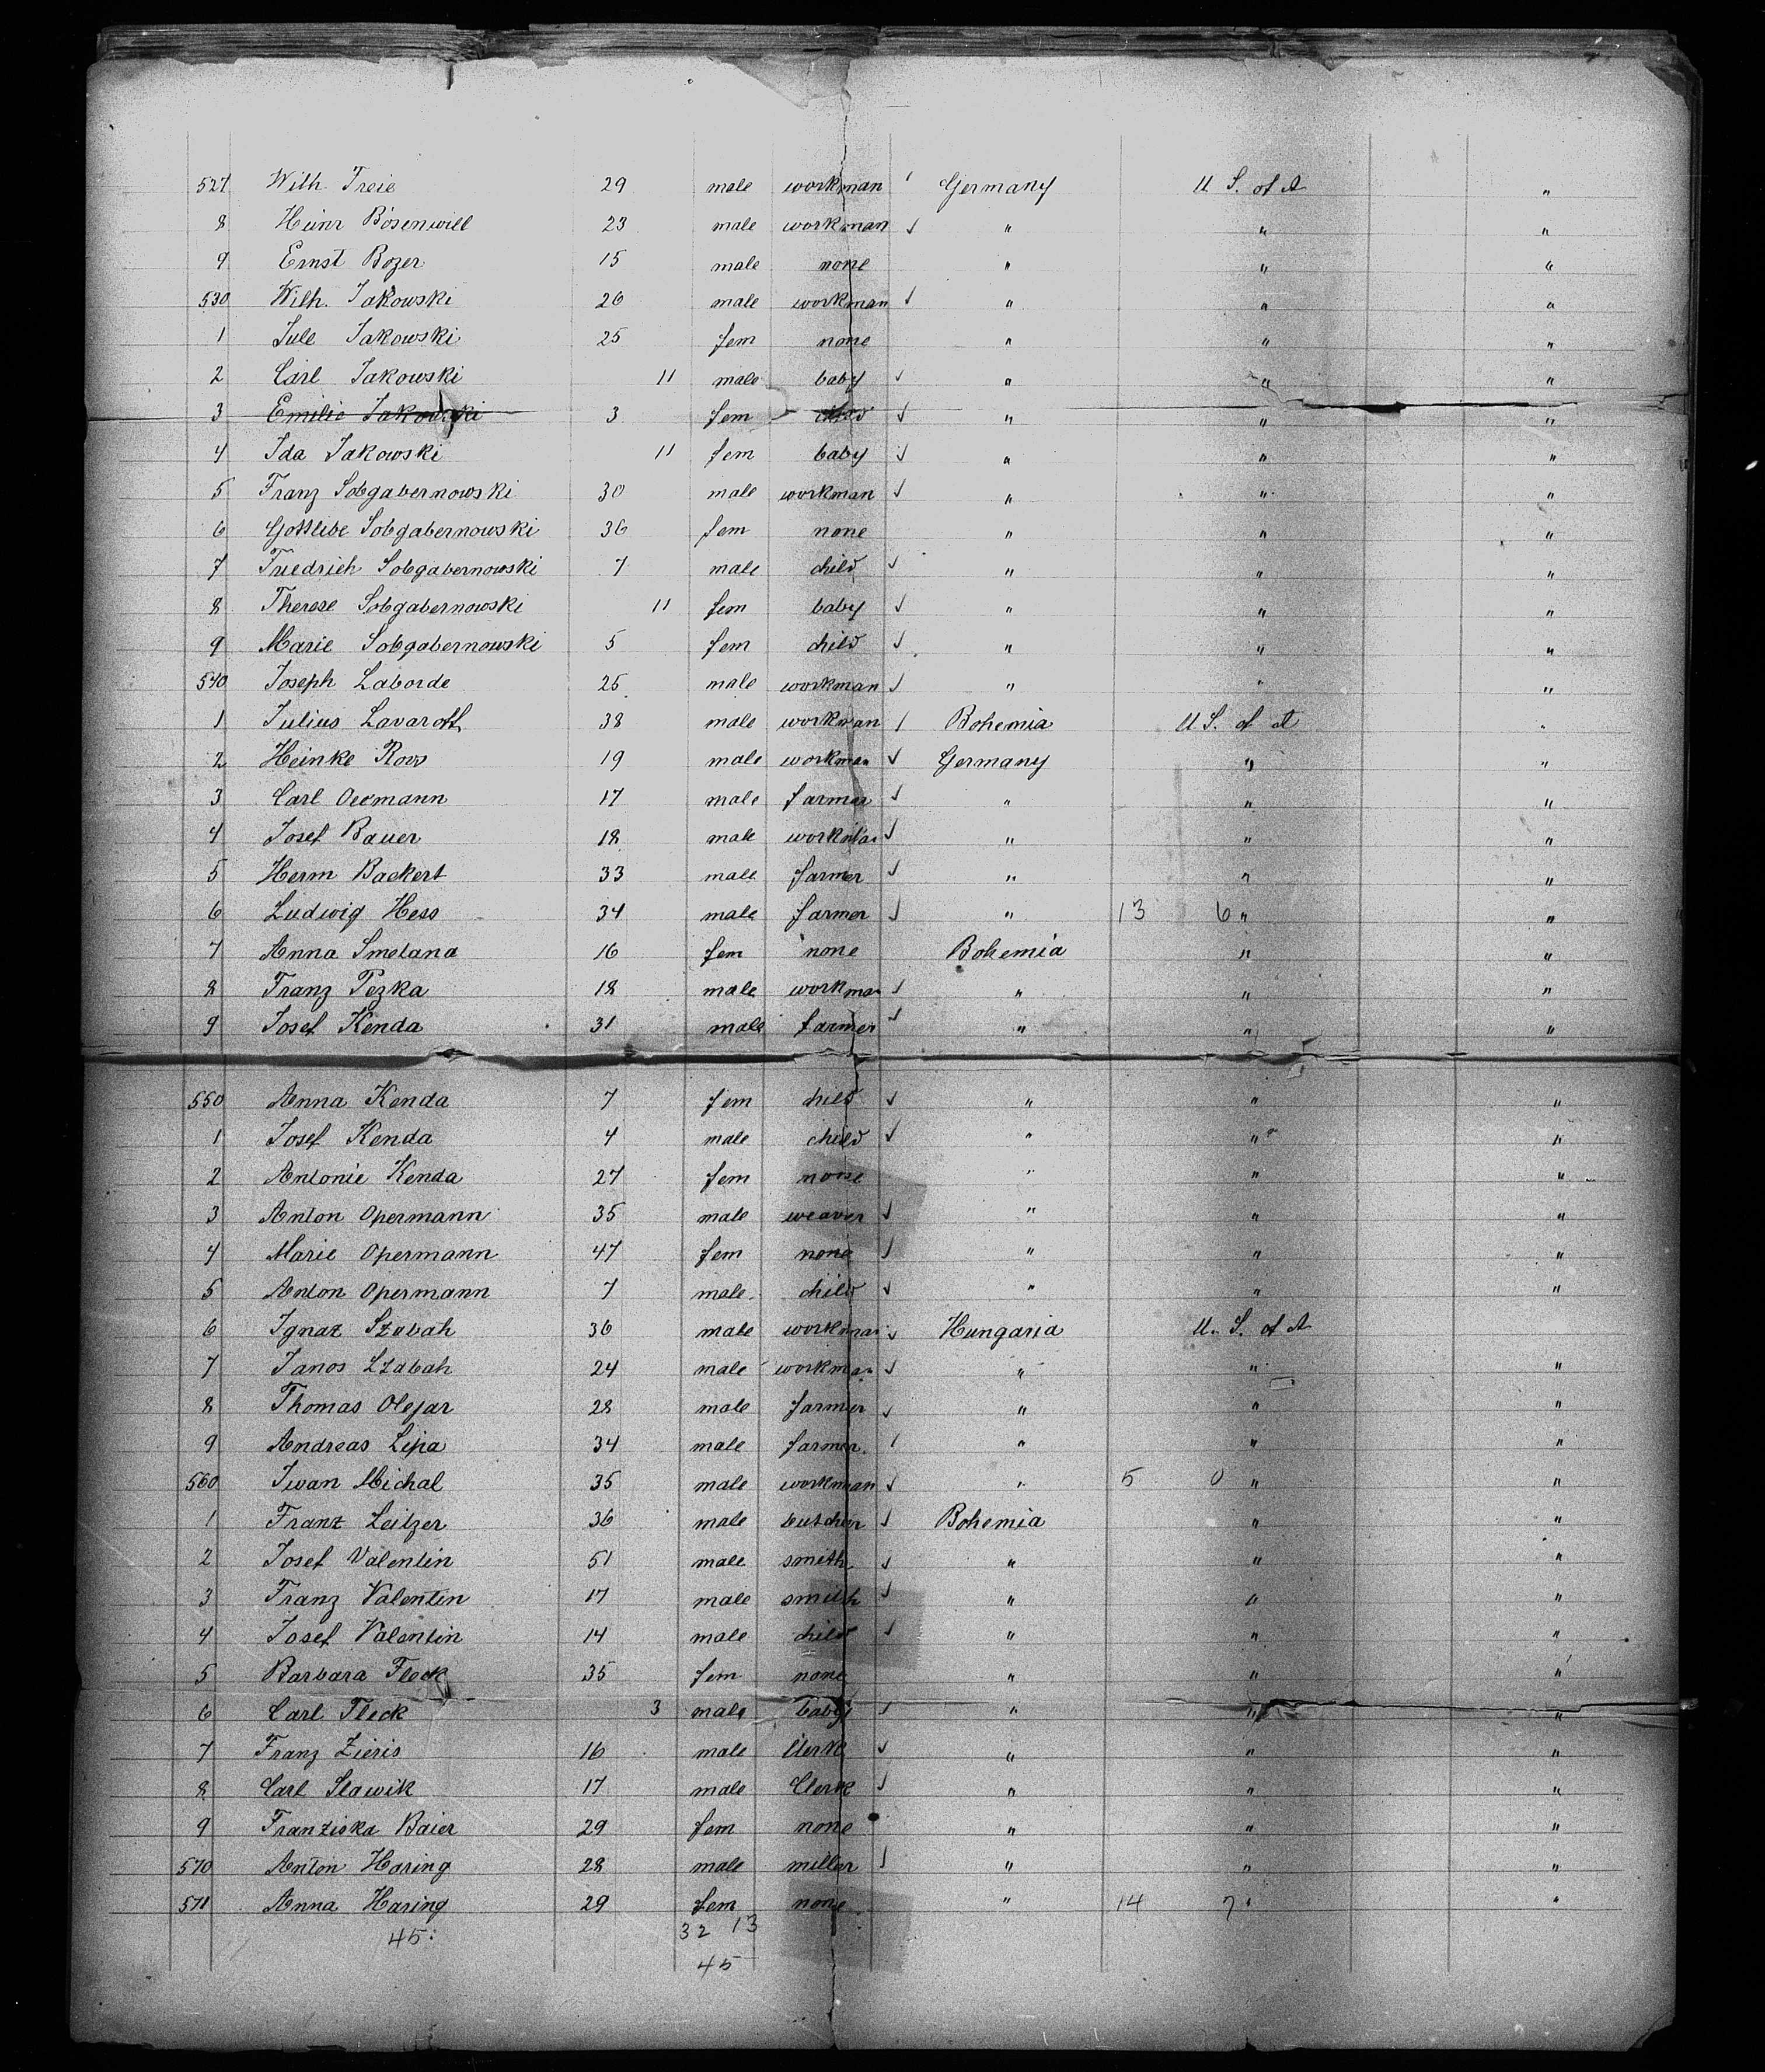 527 Wilh Treie 29 male workman Germany U. S. of A "
8 Heinr Bösenwill 23 male workman ✓ " " "
9 Ernst Bozer 15 male none " " "
530 Wilh. Jakowski 26 male workman ✓ " " "
1 Jule Jakowski 25 fem none " " "
2 Carl Jakowski 11 male baby ✓ " " "
3 Emilie Jakowski 3 fem child ✓ " " "
4 Ida Jakowski 11 fem baby ✓ " " "
5 Franz Sobgabernowski 30 male workman ✓ " " "
6 Gottliebe Sobgabernowski 36 fem none " " "
7 Friedrich Sobgabernowski 7 male child ✓ " " "
8 Therese Sobgabernowski 11 fem baby ✓ " " "
9 Marie Sobgabernowski 5 fem child ✓ " " "
540 Joseph Laborde 25 male workman ✓ " " "
1 Julius 38 male workman ✓ Bohemia U S. of A "
2 Heinke Rows 19 male workman ✓ Germany " "
3 Carl Oecmann 17 male farmer ✓ " " "
4 Josef Bauer 18 male workman ✓ " " "
5 Herm Backert 33 male farmer ✓ " " "
6 Ludwig Hess 34 male farmer ✓ " 13 6 " "
7 Anna Smetana 16 fem none Bohemia " "
8 Franz Pezka 18 male workman ✓ " " "
9 Josef Kenda 31 male farmer ✓ " " "
550 Anna Kenda 7 fem child ✓ " " "
1 Josef Kenda 4 male child ✓ " " "
2 Antonie Kenda 27 fem none " " "
3 Anton Opermann 35 male weaver ✓ " " "
4 Marie Opermann 47 fem none ✓ " " "
5 Anton Opermann 7 male child ✓ " " "
6 Ignaz Szabah 36 male workman ✓ Hungaria U. S. of A
7 Janos Szabah 24 male workman ✓ " " "
8 Thomas Olejar 28 male farmer ✓ " " "
9 Andreas Lipa 34 male farmer. ✓ " " "
560 Iwan Michal 35 male workman ✓ " 5 0 " "
1 Franz Leitzer 36 male butcher ✓ Bohemia " "
2 Josef Valentin 51 male smith ✓ " " "
3 Franz Valentin 17 male smith ✓ " " "
4 Josef Valentin 14 male child ✓ " " "
5 Barbara Fleck 35 fem none " " "
6 Carl Fleck 3 male baby ✓ " " "
7 Franz Zieris 16 male Clerk ✓ " " "
8 Carl Slawik 17 male Clerk ✓ " " "
9 Franziska Baier 29 fem none " " "
570 Anton Haring 28 male miller ✓ " " "
571 Anna Haring 29 fem none " 14 7 " "
45: 32 13
45